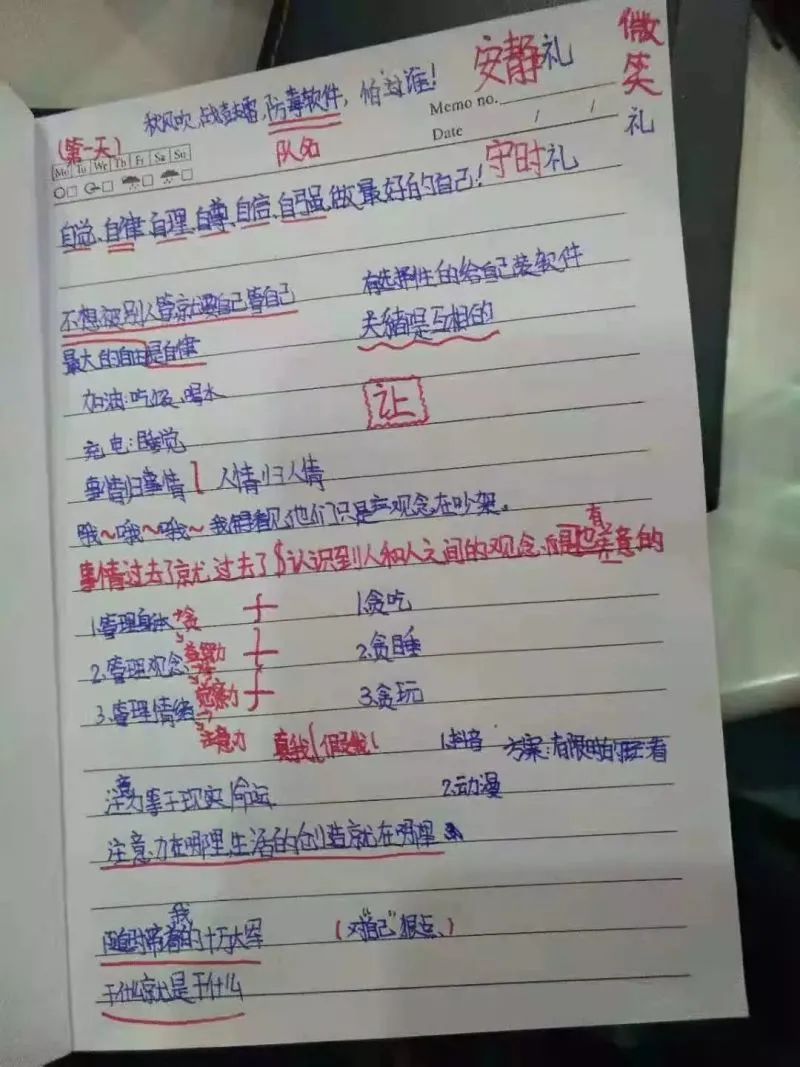 微笑礼
安静礼
秋风吹,战鼓雷,防毒软件,怕过谁!
Memo no.
Date / /
(第一天)
队名
守时礼
Mo Tu We Th Fr Sa Su
自觉、自律、自理、自尊、自信、自强,做最好的自己!
不想被别人管就要自己管自己
有选择性的给自己装软件
最大的自由是自律
关系是互相的
加油:吃饭、喝水
让
充电:睡觉
事情归事情 人情归人情
哦~哦~哦~我得看见他们只是声观念在吵架。
事情过去了就过去了 认识到人和人之间的观念 也有 的
1.管理身体 贪
1.贪吃
2.管理观念 觉察力
2.贪睡
3.管理情绪 觉察力
3.贪玩
注意力
真我 假我
1.抖音 方案:有限时 看
注意力等于现实命运
2.动漫
注意力在哪里,生活的创造就在哪里
随时带着我的十万大军
(对"自己"狠点、)
干什么就是干什么